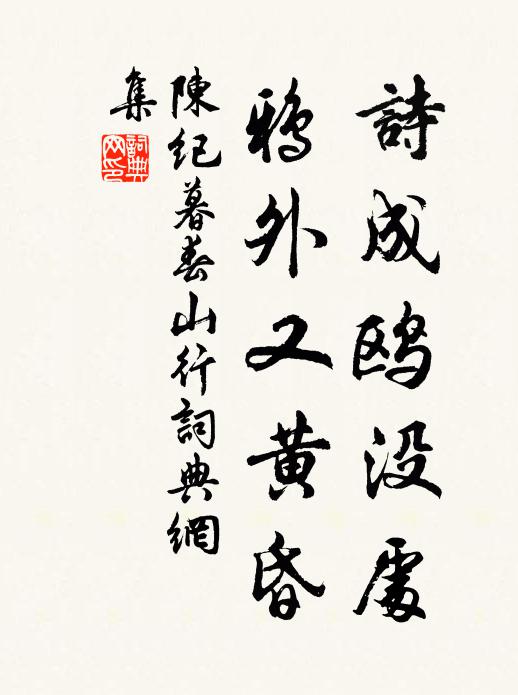 詩成鷗没處
鴉外又黄昏
陳紀暮春山行詞典網
集
詞典網印